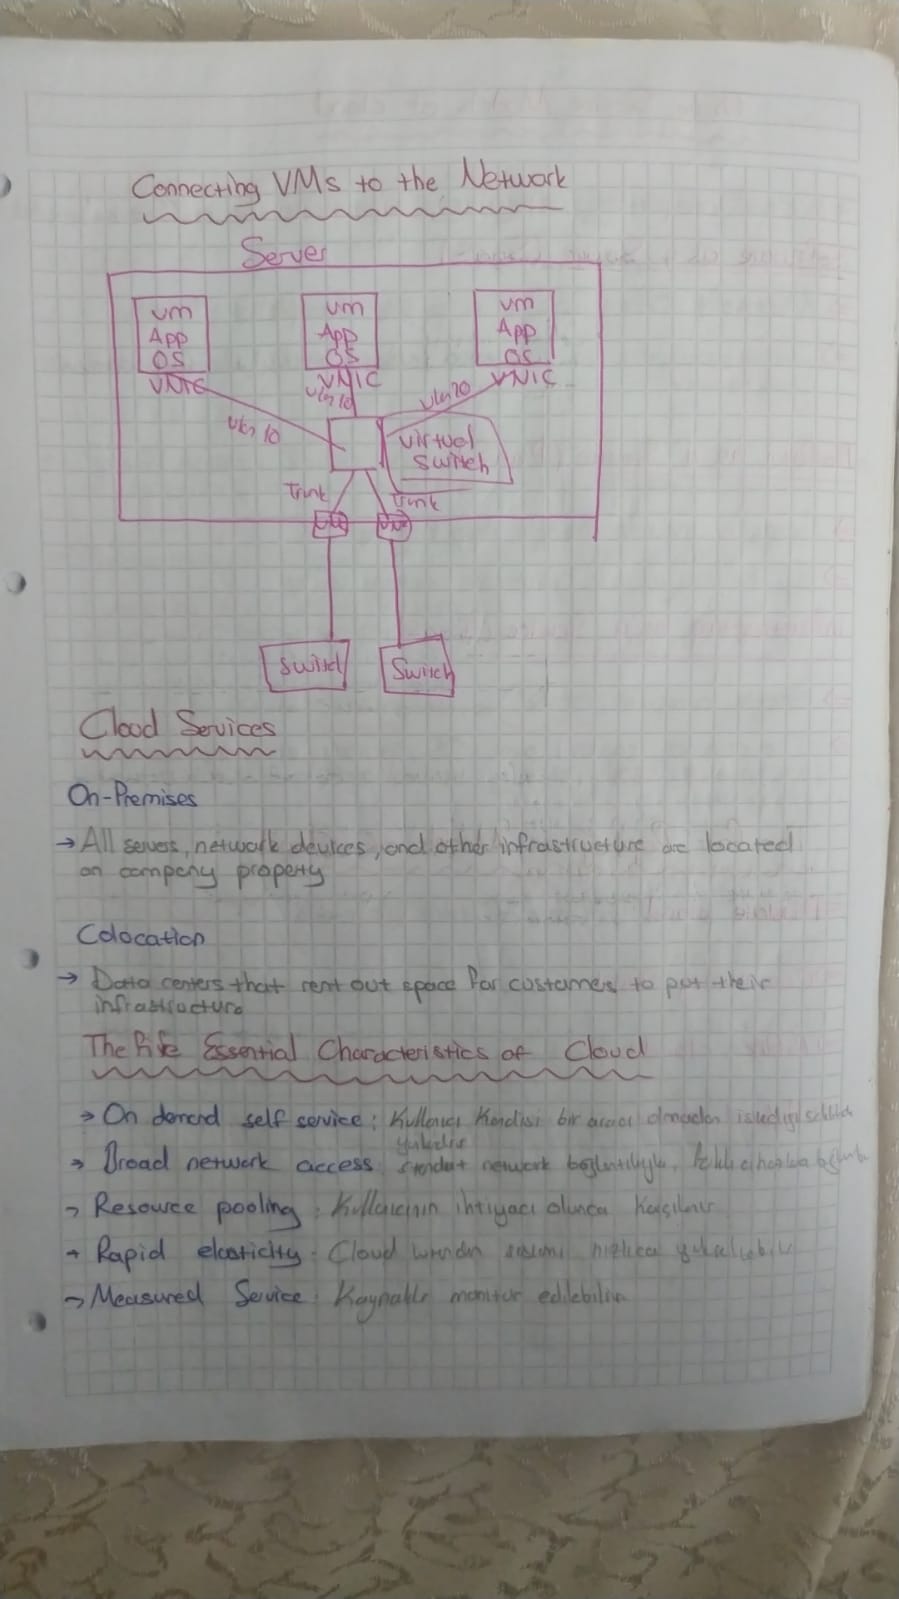 Connecting VMs to the Network
Server
vm vm vm
App App App
OS OS OS
VNIC VNIC VNIC
vlan 10 vlan 10 vlan 20
virtual
switch
Trunk Trunk
Switch Switch
Cloud Services
On-Premises
→ All servers, network devices, and other infrastructure are located
on company property
Colocation
→ Data centers that rent out space for customers to put their
infrastructure
The Five Essential Characteristics of Cloud
→ On demand self service: Kullanıcı Kendisi bir aracı olmadan istediği
→ Broad network access: network bağlantılıyla,
→ Resource pooling: Kullanıcının ihtiyacı olunca Karşılanır
→ Rapid elasticity: Cloud hızlıca
→ Measured Service: Kaynaklr monitor edilebilir